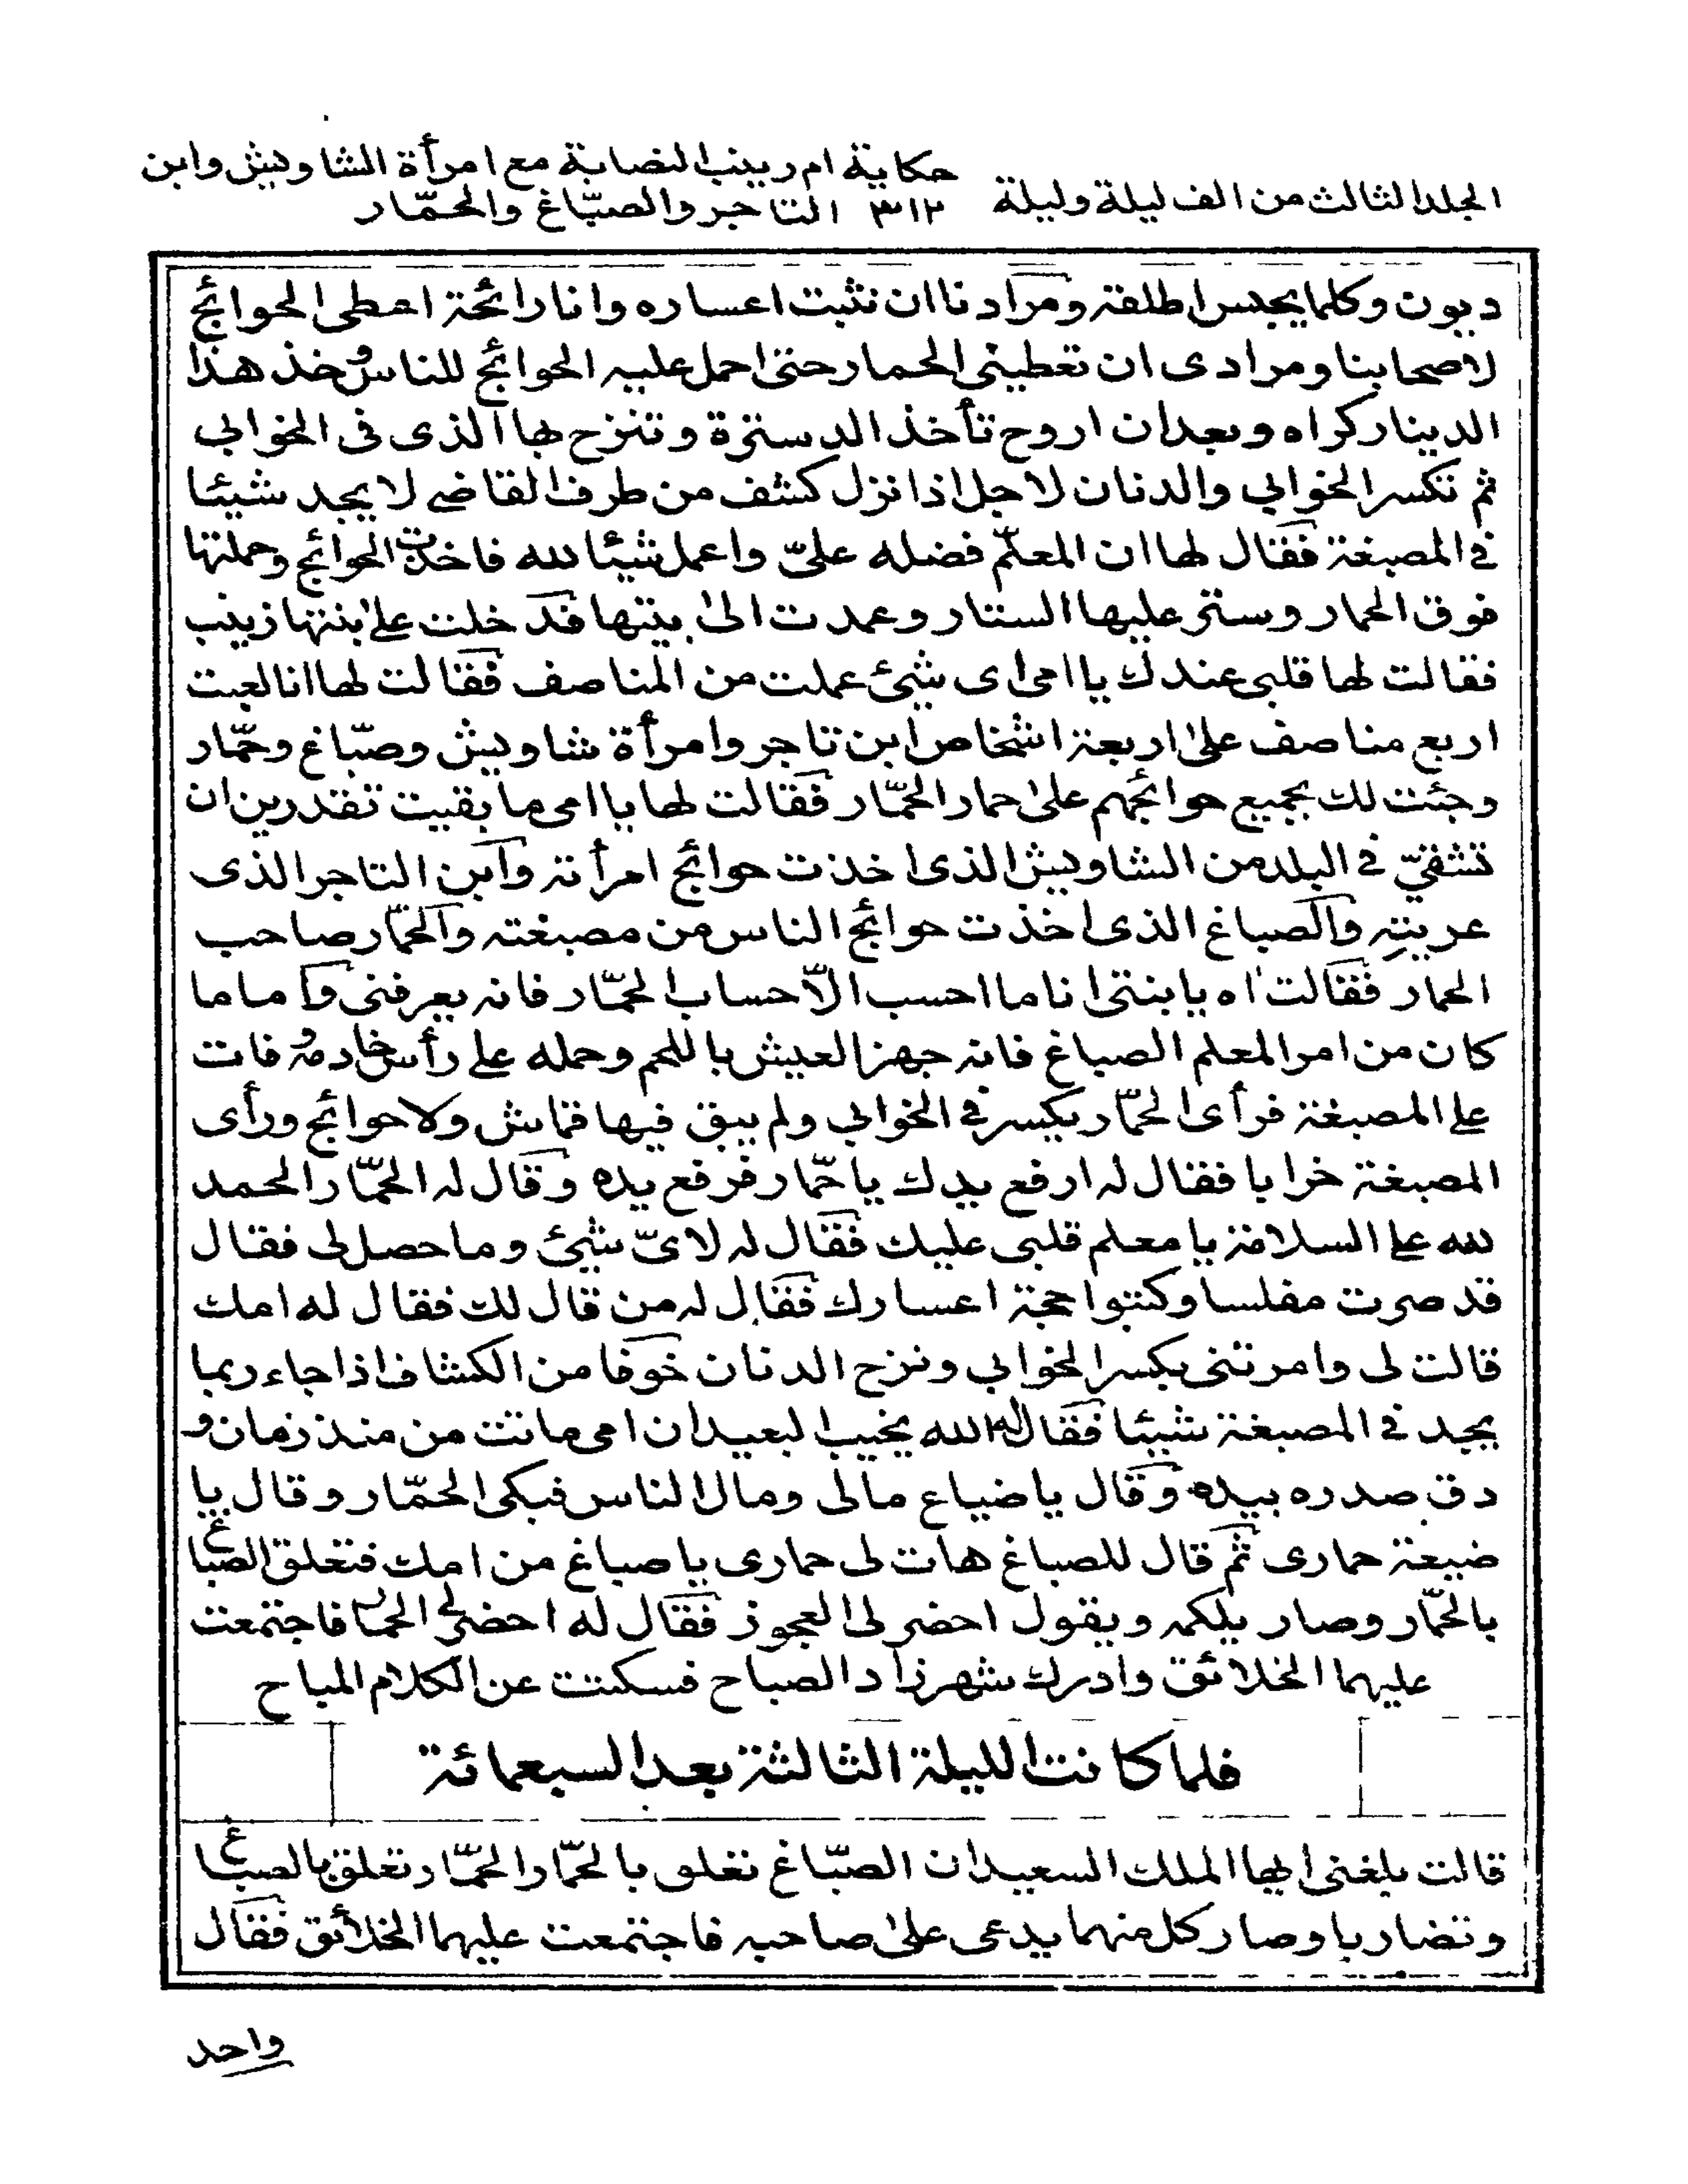 حكاية ام زينب النصابة مع امرأة الشاويش وابن
الجلد الثالث من الف ليلة وليلة ٣١٢ التاجر والصبّاغ والحمّار
ديون وكلما يحبس اطلقته ومرادنا ان نثبت اعساره وانا رائحة اعطى الحوائج
لاصحابنا ومرادى ان تعطينى الحمار حتى احمل عليه الحوائج للناس وخذ هذا
الدينار كراه وبعد ان اروح تأخذ الدسترة وتنزح بها الذى فى الخوابي
ثم تكسر الخوابي والدنان لاجل اذا نزل كشف من طرف القاضى لا يجد شيئا
فى المصبغة فقال لها ان المعلّم فضله علىّ واعمل شيئا لله فاخذت الحوائج وحملتها
فوق الحمار وستر عليها الستار وعمدت الى بيتها فدخلت على بنتها زينب
فقالت لها قلبى عندك يا امى اى شئ عملت من المناصف فقالت لها انا لعبت
اربع مناصف على اربعة اشخاص ابن تاجر وامرأة شاويش وصبّاغ وحمّار
وجئت لك بجميع حوائجهم على حمار الحمّار فقالت لها يا امى ما بقيت تقدرين ان
تشقيّ فى البلد من الشاويش الذى اخذت حوائج امرأته وابن التاجر الذى
عريته والصباغ الذى اخذت حوائج الناس من مصبغته والحمّار صاحب
الحمار فقالت اه يا بنتى انا ما احسب الّا حساب الحمّار فانه يعرفنى واما ما
كان من امر المعلم الصباغ فانه جهز العيش باللحم وحمله على رأس خادمه وفات
على المصبغة فرأى الحمّار يكسر فى الخوابي ولم يبق فيها قماش ولا حوائج ورأى
المصبغة خرابا فقال له ارفع يدك يا حمّار فرفع يده وقال له الحمّار الحمد
لله على السلامة يا معلم قلبى عليك فقال له لاىّ شئ وما حصل لى فقال
قد صرت مفلسا وكتبوا حجة اعسارك فقال له من قال لك فقال له امك
قالت لى وامرتنى بكسر الخوابي ونزح الدنان خوفا من الكشاف اذا جاء ربما
يجد فى المصبغة شيئا فقال له الله يخيب البعيد ان امى ماتت من منذ زمان و
دق صدره بيده وقال يا ضياع مالى ومال الناس فبكى الحمّار وقال يا
ضيعة حمارى ثم قال للصباغ هات لى حمارى يا صباغ من امك فتعلق الصباغ
بالحمّار وصار يلكمه ويقول احضر لى العجوز فقال له احضر لى الحمار فاجتمعت
عليهما الخلائق وادرك شهرزاد الصباح فسكتت عن الكلام المباح
فلما كانت الليلة الثالثة بعد السبعمائة
قالت بلغنى ايها الملك السعيد ان الصبّاغ تعلق بالحمّار والحمّار تعلق بالصباغ
وتضاربا وصار كل منهما يدعى على صاحبه فاجتمعت عليهما الخلائق فقال
واحد